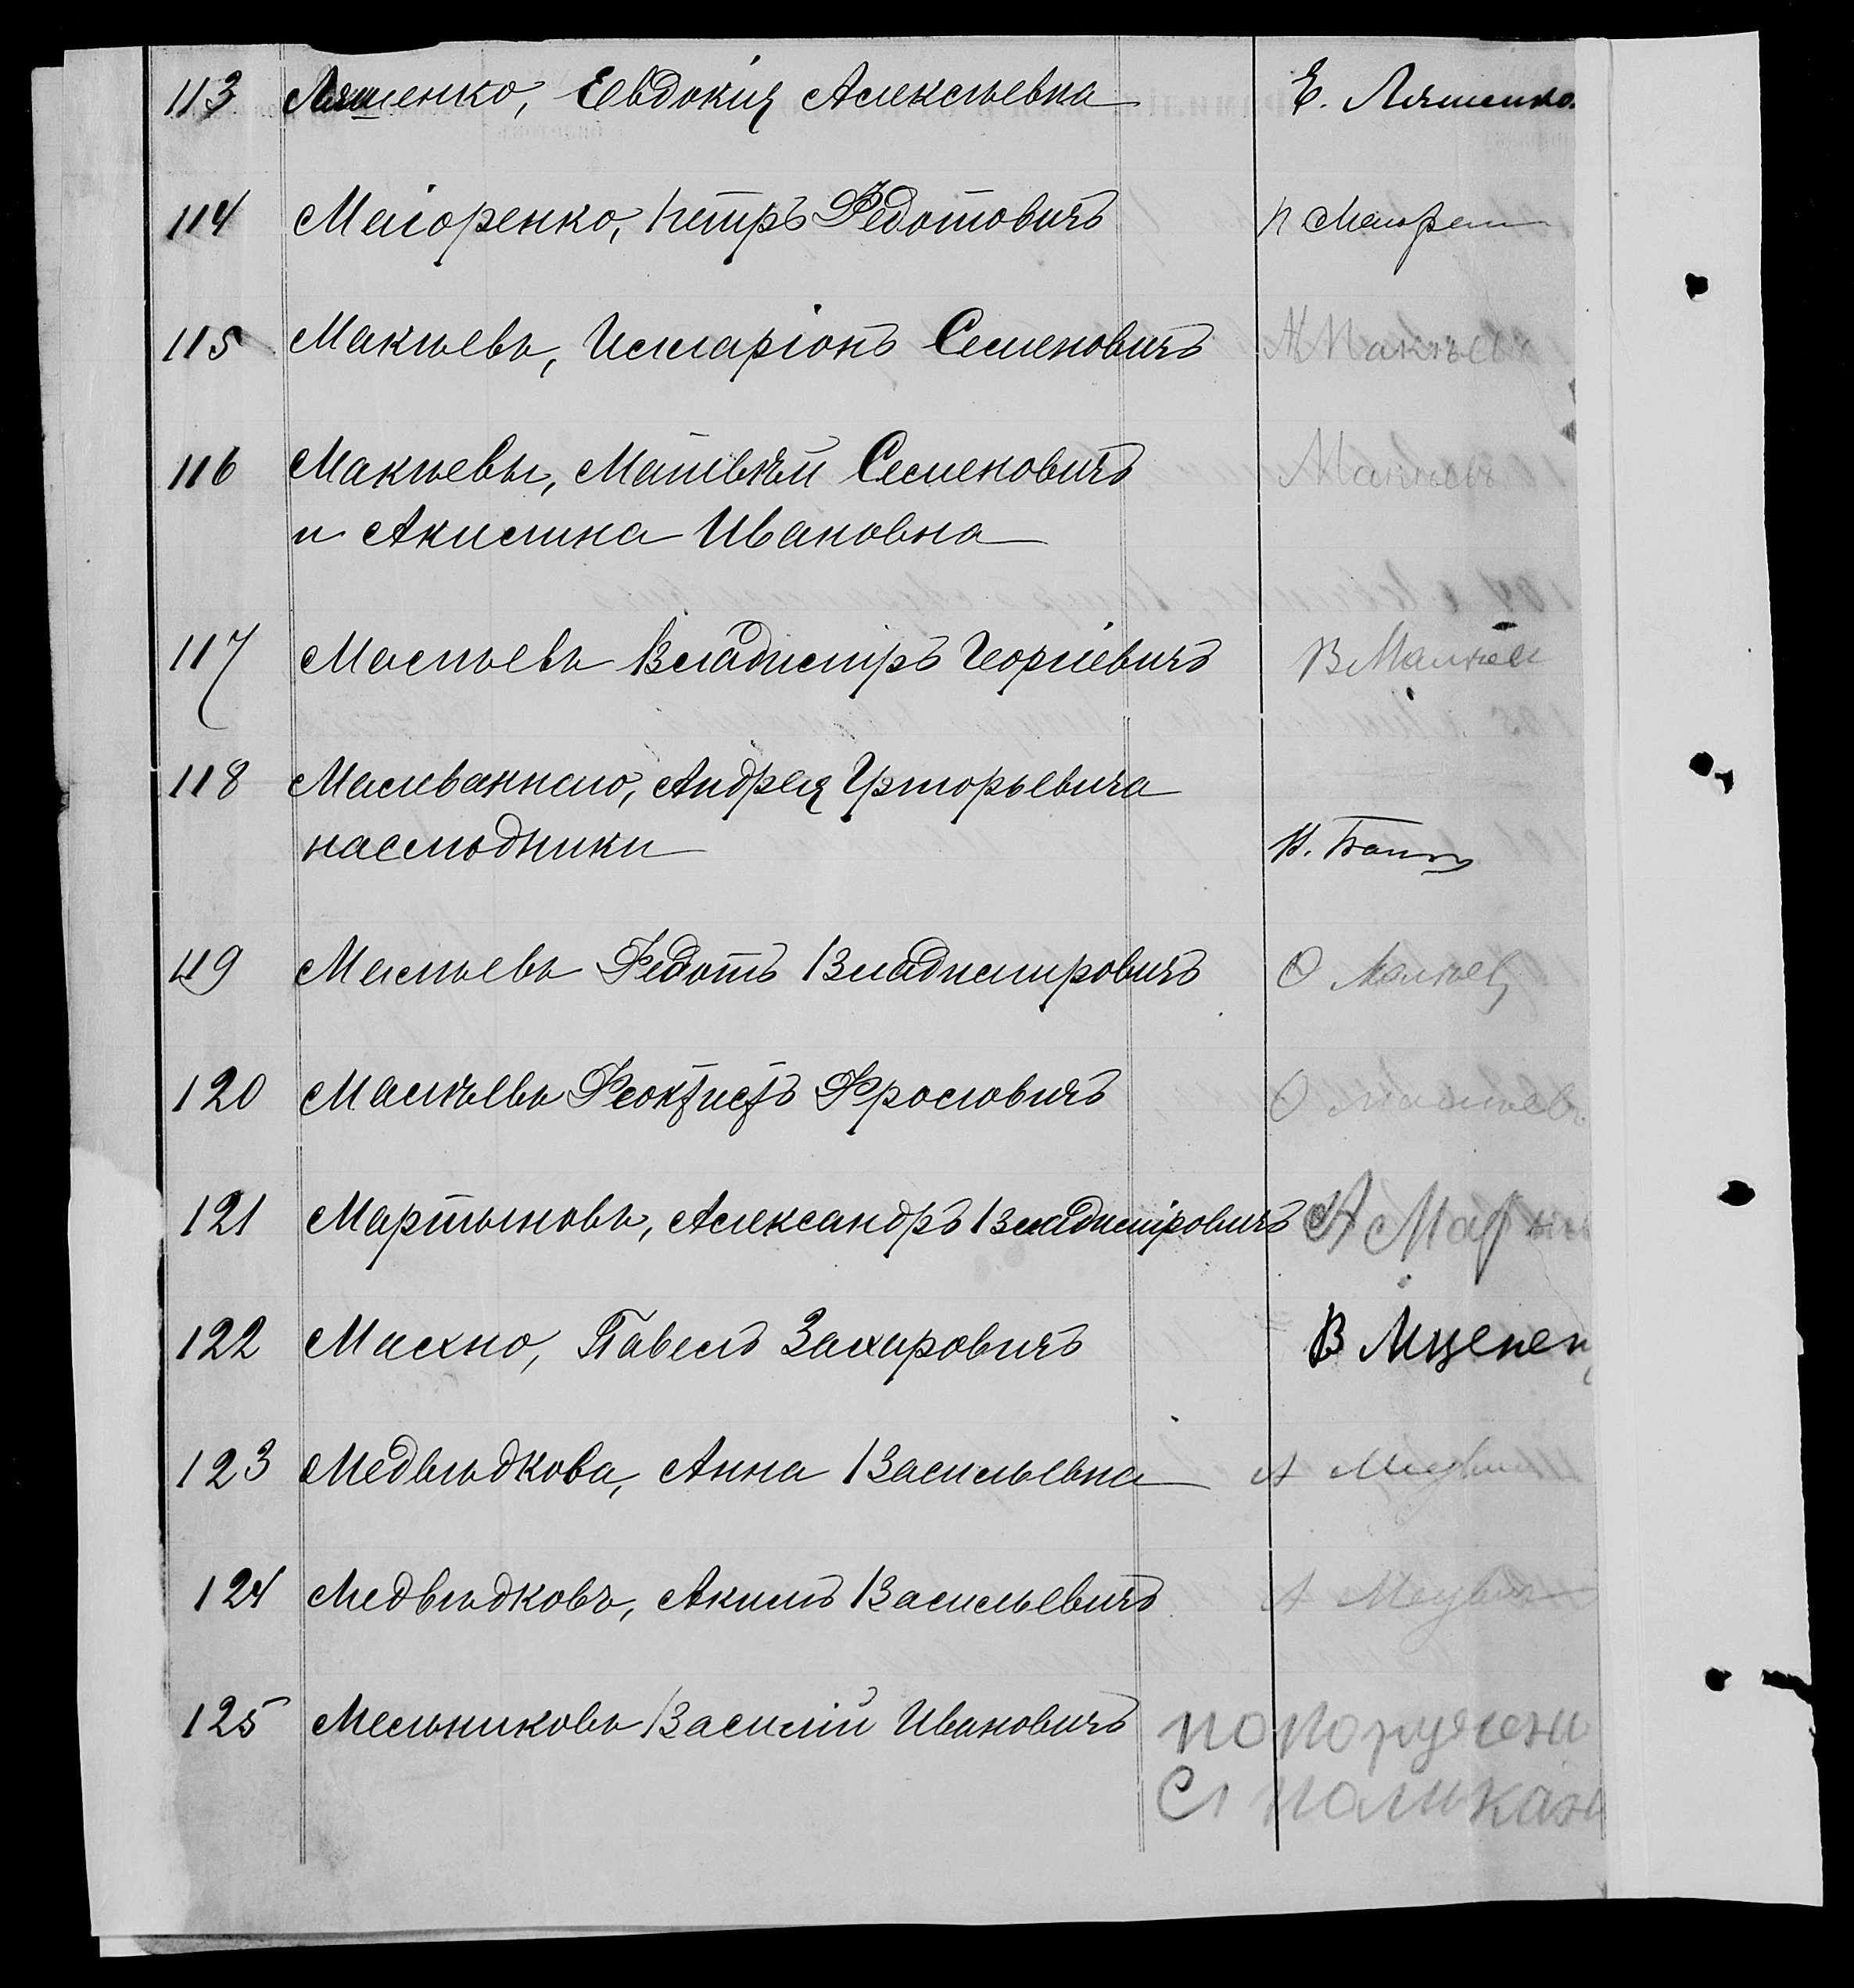 113 Ляшенко, Евдокія Алексѣевна Е. Ляшенко.
114 Маіоренко, Петръ Федотовичъ П Маіорен
115 Макѣевъ, Илларіонъ Семеновичъ Макѣевъ
116 Макѣевы, Матвѣй Семеновичъ Макѣевъ
и Акилина Ивановна
117 Малѣевъ Владиміръ Георгіевичъ В Малѣев
118 Маливаннаго, Андрея Григорьевича
наслѣдники
119 Малѣевъ Федотъ Владиміровичъ Ѳ Малѣев
120 Малѣевъ Феоктистъ Фроловичъ Ѳ Малѣевъ
121 Мартыновъ, Александръ Владиміровичъ А Мар
122 Махно, Павелъ Захаровичъ В Мцепен
123 Медвѣдкова, Анна Васильевна А
124 Медвѣдковъ, Акимъ Васильевичъ А
125 Мельниковъ Василій Ивановичъ по поручени